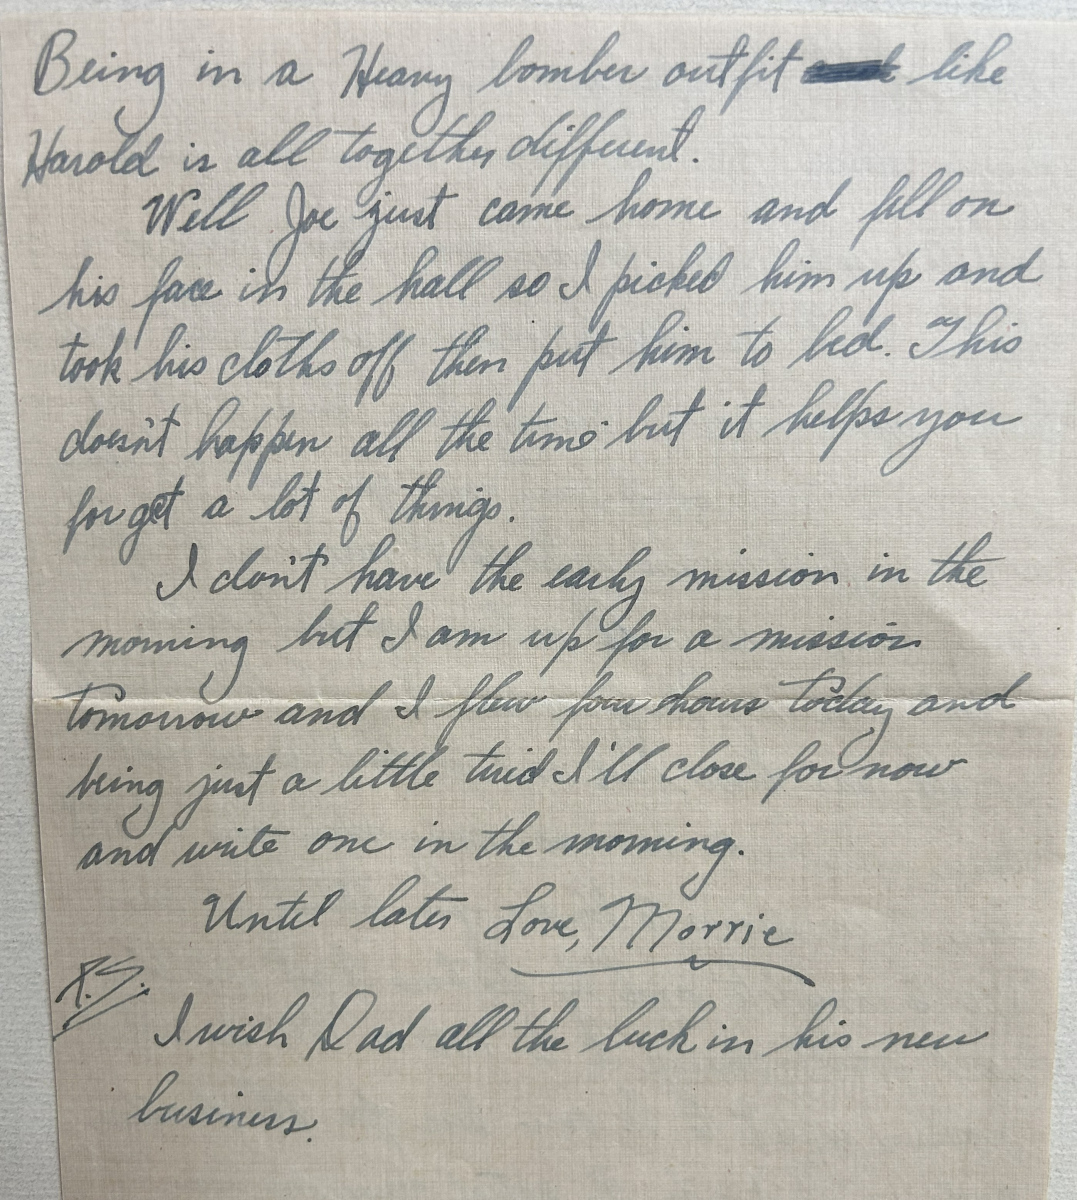 Being in a Heavy bomber outfit like
Harold is all together different.
Well Joe just came home and fell on
his face in the hall so I picked him up and
took his cloths off then put him to bed. This
doesn't happen all the time but it helps you
forget a lot of things.
I don't have the early mission in the
morning but I am up for a mission
tomorrow and I flew four hours today and
being just a little tired I'll close for now
and write one in the morning.
Until later Love, Morrie
P.S.
I wish Dad all the luck in his new
business.